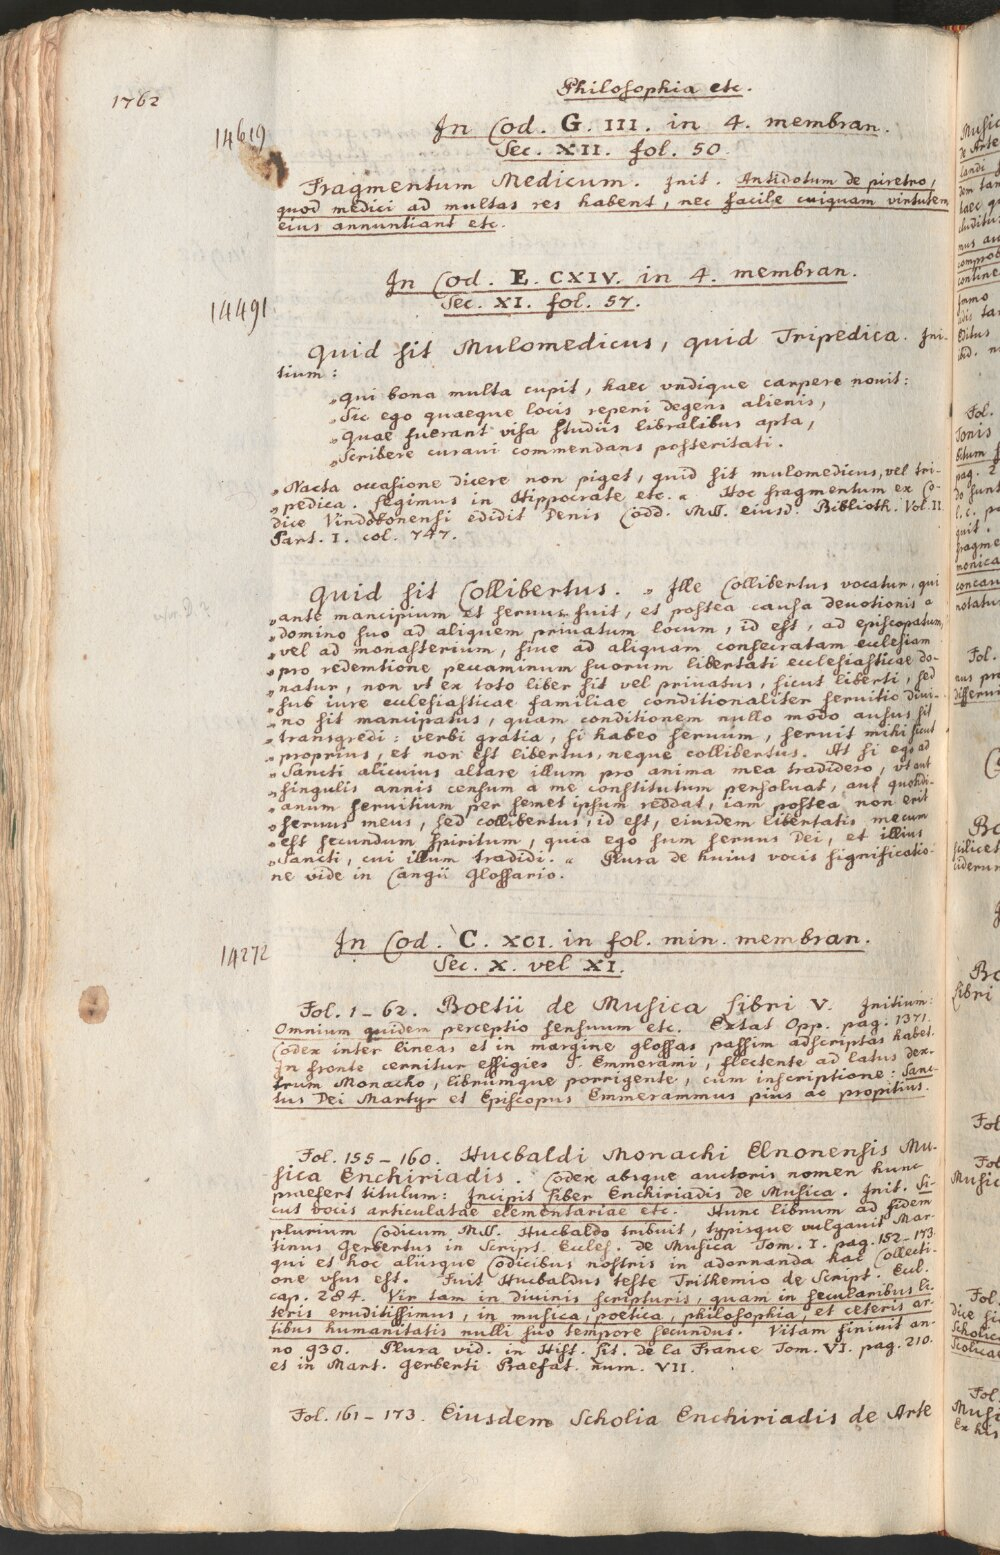 1762
Philosophia etc.
14619
In Cod. G. III. in 4. membran.
Sec. XII. fol. 50.
Fragmentum Medicum. Init. Antidotum de piretro,
quod medici ad multas res habent, nec facile cuiquam virtutem
eius annuntiant etc.
In Cod. E. CXIV. in 4. membran.
14491
Sec. XI. fol. 57.
Quid sit Mulomedicus, quid Tripedica. Ini-
tium:
„Qui bona multa cupit, haec vndique carpere nouit:
„Sic ego quaeque locis reperi degens alienis,
„Quae fuerant visa studiis libralibus apta,
„Scribere curaui commendans posteritati.
„Nacta occasione dicere non piget, quid sit mulomedicus, vel tri-
„pedica. Legimus in Hippocrate etc." Hoc fragmentum ex Co-
dice Vindobonensi edidit Denis Codd. MSS. eiusd. Biblioth. Vol. II.
Part. I. col. 747.
Quid sit Collibertus. „Ille Collibertus vocatur, qui
„ante mancipium et seruus fuit, et postea causa deuotionis a
„domino suo ad aliquem priuatum locum, id est, ad episcopatum,
„vel ad monasterium, siue ad aliquam consecratam ecclesiam
„pro redemtione peccaminum suorum libertati ecclesiasticae do-
„natur, non vt ex toto liber sit vel priuatus, sicut liberti, sed
„sub iure ecclesiasticae familiae conditionaliter seruitio diui-
„no sit mancipatus, quam conditionem nullo modo ausus sit
„transgredi: verbi gratia, si habeo seruum, seruit mihi sicut
„proprius, et non est libertus, neque collibertus. At si ego ad
„Sancti alicuius altare illum pro anima mea tradidero, vt aut
„singulis annis censum a me constitutum persoluat, aut quotidi-
„anum seruitium per semet ipsum reddat, iam postea non erit
„seruus meus, sed collibertus, id est, eiusdem libertatis mecum
„est secundum spiritum, quia ego sum seruus Dei, et illius
„Sancti, cui illum tradidi." Plura de huius vocis significatio-
ne vide in Cangii Glossario.
14272
In Cod. C. XCI. in fol. min. membran.
Sec. X. vel XI.
Fol. 1-62. Boetii de Musica Libri V. Initium:
Omnium quidem perceptio sensuum etc. Extat Opp. pag. 1371.
Codex inter lineas et in margine glossas passim adscriptas habet.
In fronte cernitur effigies S. Emmerami, flectente ad latus dex-
trum Monacho, librumque porrigente, cum inscriptione: Sanc-
tus Dei Martyr et Episcopus Emmerammus pius ac propitius.
Fol. 155-160. Hucbaldi Monachi Elnonensis Mu-
sica Enchiriadis. Codex absque auctoris nomen hunc
praefert titulum: Incipit Liber Enchiriadis de Musica. Init. Si-
cut vocis articulatae elementariae etc. Hunc librum ad fidem
plurium Codicum MSS. Hucbaldo tribuit, typisque vulgauit Mar-
tinus Gerbertus in Script. Eccles. de Musica Tom. I. pag. 152-173.
qui et hoc aliisque Codicibus nostris in adornanda hac Collecti-
one vsus est. Fuit Hucbaldus teste Trithemio de Script. Eccl.
cap. 284. Vir tam in diuinis scripturis, quam in secularibus li-
teris eruditissimus, in musica, poetica, philosophia, et ceteris ar-
tibus humanitatis nulli suo tempore secundus. Vitam finiuit an-
no 930. Plura vid. in Hist. Lit. de la France Tom. VI. pag. 210.
et in Mart. Gerberti Praefat. num. VII.
Fol. 161-173. Eiusdem Scholia Enchiriadis de Arte